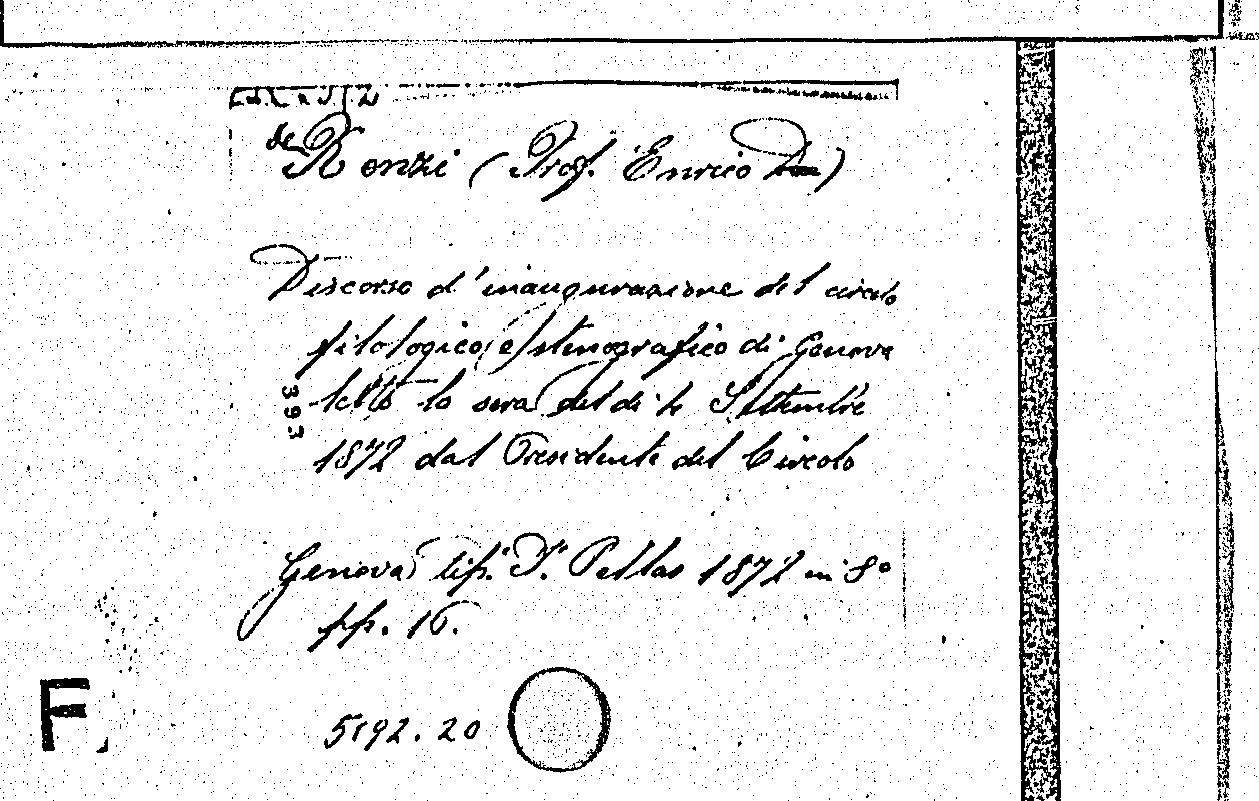 de Renzi (Prof. Enrico De)
Discorso d'inaugurazione del circolo
filologico e stenografico di Genova
letto la sera del dì 4 Settembre
1872 dal Presidente del Circolo
393
Genova tip. F. Pellas 1872 in 8°
pp. 16.
5192.20
F